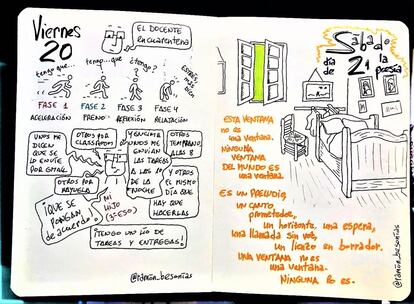 Viernes
20
EL DOCENTE
en cuarentena
tengo que...
tengo...que
¿tengo?
Estrés,
más
bien
FASE 1
ACELERACIÓN
FASE 2
FRENO
FASE 3
REFLEXIÓN
FASE 4
RELATACIÓN
UNOS ME
DICEN QUE
SE LO ENVÍE
POR GMAIL
OTROS POR
CLASSROOM
OTROS POR
RAYUELA
Y ENCIMA
UNOS ME
ENVÍAN LAS
TAREAS
A LAS 10
DE LA
NOCHE
OTROS
TEMPRANO,
A LAS 8
Y OTROS
EL MISMO
DÍA QUE
HAY QUE
HACERLAS
¡QUE SE
PONGAN
de acuerdo!
MI
HIJO
(3º ESO)
¡TENGO UN LÍO DE
TAREAS Y ENTREGAS!
@ramon_besonias
Sábado
21
día de
la
poesía
ESTA VENTANA
no es
una ventana.
NINGUNA
VENTANA
DEL MUNDO ES
una ventana.
ES UN PRELUDIO,
un canto
prometedor,
un horizonte, una espera,
una llamada sin voz,
un lienzo en borrador.
UNA VENTANA no es
una ventana.
NINGUNA lo es.
@ramon_besonias